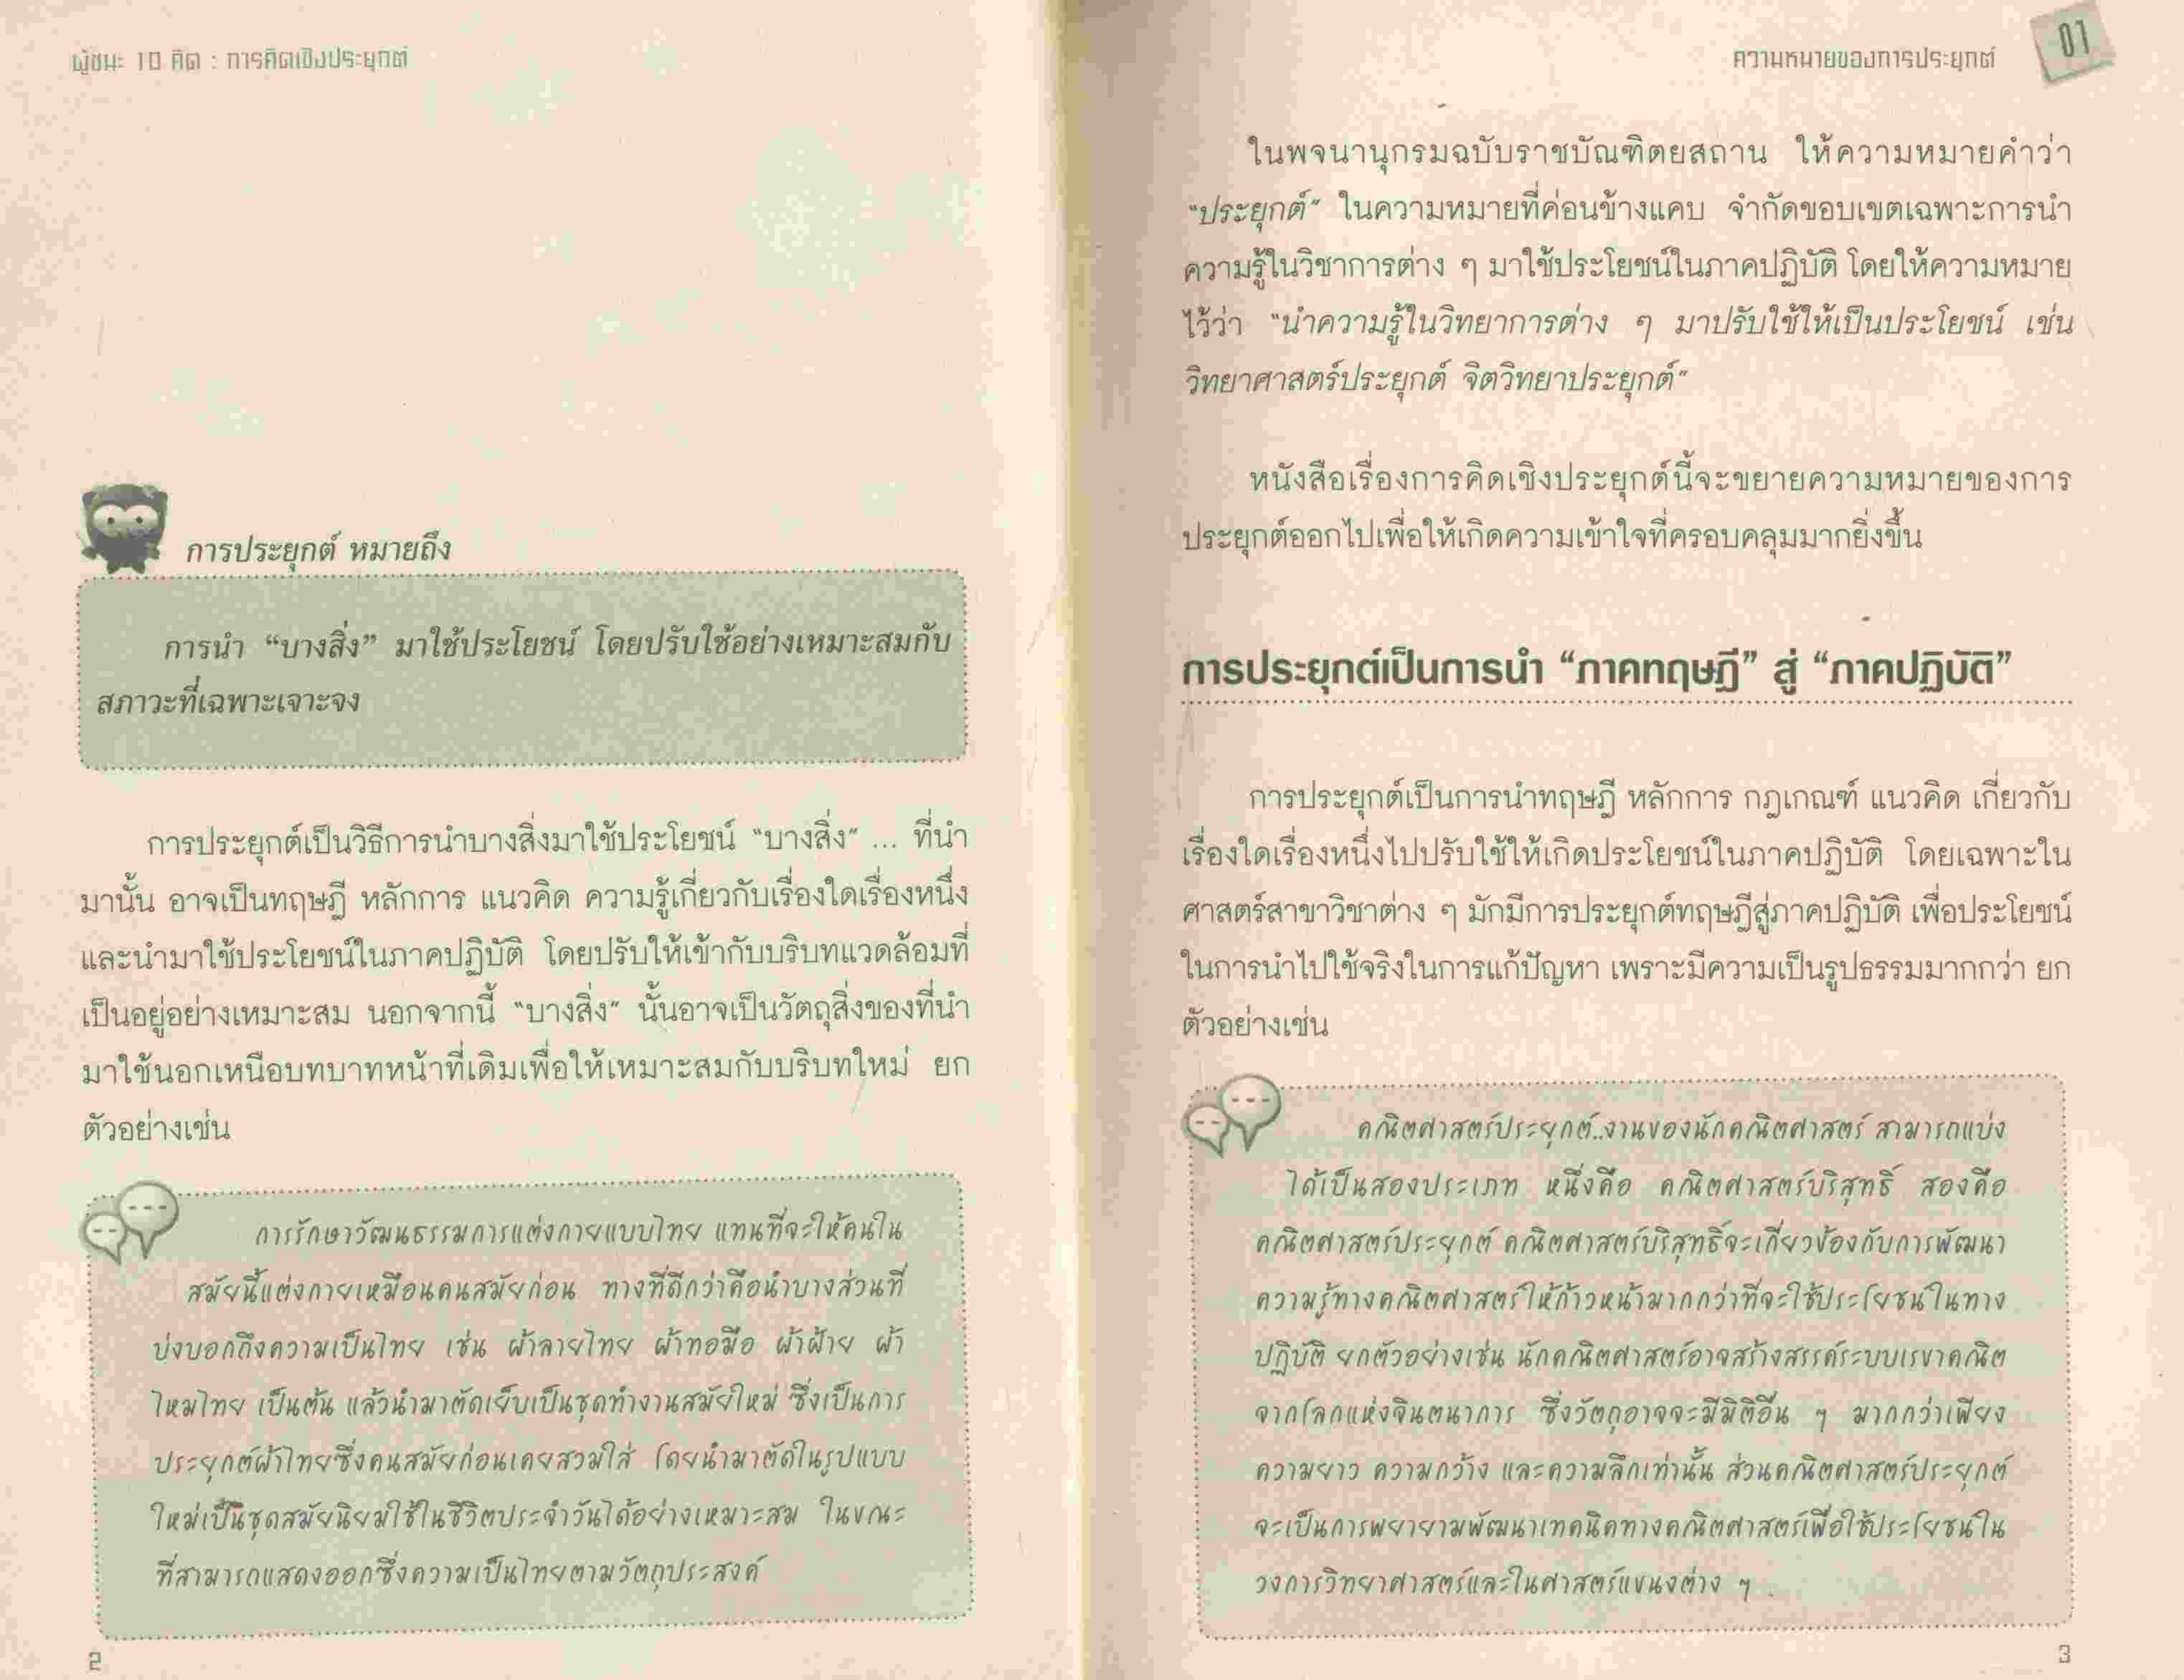 ผู้ชนะ 10 คิด : การคิดเชิงประยุกต์
การประยุกต์ หมายถึง
การนำ “บางสิ่ง” มาใช้ประโยชน์ โดยปรับใช้อย่างเหมาะสมกับ
สภาวะที่เฉพาะเจาะจง
การประยุกต์เป็นวิธีการนำบางสิ่งมาใช้ประโยชน์ “บางสิ่ง” ... ที่นำ
มานั้น อาจเป็นทฤษฎี หลักการ แนวคิด ความรู้เกี่ยวกับเรื่องใดเรื่องหนึ่ง
และนำมาใช้ประโยชน์ในภาคปฏิบัติ โดยปรับให้เข้ากับบริบทแวดล้อมที่
เป็นอยู่อย่างเหมาะสม นอกจากนี้ “บางสิ่ง” นั้นอาจเป็นวัตถุสิ่งของที่นำ
มาใช้นอกเหนือบทบาทหน้าที่เดิมเพื่อให้เหมาะสมกับบริบทใหม่ ยก
ตัวอย่างเช่น
การรักษาวัฒนธรรมการแต่งกายแบบไทย แทนที่จะให้คนใน
สมัยนี้แต่งกายเหมือนคนสมัยก่อน ทางที่ดีกว่าคือนำบางส่วนที่
บ่งบอกถึงความเป็นไทย เช่น ผ้าลายไทย ผ้าทอมือ ผ้าฝ้าย ผ้า
ไหมไทย เป็นต้น แล้วนำมาตัดเย็บเป็นชุดทำงานสมัยใหม่ ซึ่งเป็นการ
ประยุกต์ผ้าไทยซึ่งคนสมัยก่อนเคยสวมใส่ โดยนำมาตัดในรูปแบบ
ใหม่เป็นชุดสมัยนิยมใช้ในชีวิตประจำวันได้อย่างเหมาะสม ในขณะ
ที่สามารถแสดงออกซึ่งความเป็นไทยตามวัตถุประสงค์
2
ความหมายของการประยุกต์ 01
ในพจนานุกรมฉบับราชบัณฑิตยสถาน ให้ความหมายคำว่า
“ประยุกต์” ในความหมายที่ค่อนข้างแคบ จำกัดขอบเขตเฉพาะการนำ
ความรู้ในวิชาการต่าง ๆ มาใช้ประโยชน์ในภาคปฏิบัติ โดยให้ความหมาย
ไว้ว่า “นำความรู้ในวิทยาการต่าง ๆ มาปรับใช้ให้เป็นประโยชน์ เช่น
วิทยาศาสตร์ประยุกต์ จิตวิทยาประยุกต์”
หนังสือเรื่องการคิดเชิงประยุกต์นี้จะขยายความหมายของการ
ประยุกต์ออกไปเพื่อให้เกิดความเข้าใจที่ครอบคลุมมากยิ่งขึ้น
การประยุกต์เป็นการนำ “ภาคทฤษฎี” สู่ “ภาคปฏิบัติ”
การประยุกต์เป็นการนำทฤษฎี หลักการ กฎเกณฑ์ แนวคิด เกี่ยวกับ
เรื่องใดเรื่องหนึ่งไปปรับใช้ให้เกิดประโยชน์ในภาคปฏิบัติ โดยเฉพาะใน
ศาสตร์สาขาวิชาต่าง ๆ มักมีการประยุกต์ทฤษฎีสู่ภาคปฏิบัติ เพื่อประโยชน์
ในการนำไปใช้จริงในการแก้ปัญหา เพราะมีความเป็นรูปธรรมมากกว่า ยก
ตัวอย่างเช่น
คณิตศาสตร์ประยุกต์..งานของนักคณิตศาสตร์ สามารถแบ่ง
ได้เป็นสองประเภท หนึ่งคือ คณิตศาสตร์บริสุทธิ์ สองคือ
คณิตศาสตร์ประยุกต์ คณิตศาสตร์บริสุทธิ์จะเกี่ยวข้องกับการพัฒนา
ความรู้ทางคณิตศาสตร์ให้ก้าวหน้ามากกว่าที่จะใช้ประโยชน์ในทาง
ปฏิบัติ ยกตัวอย่างเช่น นักคณิตศาสตร์อาจสร้างสรรค์ระบบเรขาคณิต
จากโลกแห่งจินตนาการ ซึ่งวัตถุอาจจะมีมิติอื่น ๆ มากกว่าเพียง
ความยาว ความกว้าง และความลึกเท่านั้น ส่วนคณิตศาสตร์ประยุกต์
จะเป็นการพยายามพัฒนาเทคนิคทางคณิตศาสตร์เพื่อใช้ประโยชน์ใน
วงการวิทยาศาสตร์และในศาสตร์แขนงต่าง ๆ
3